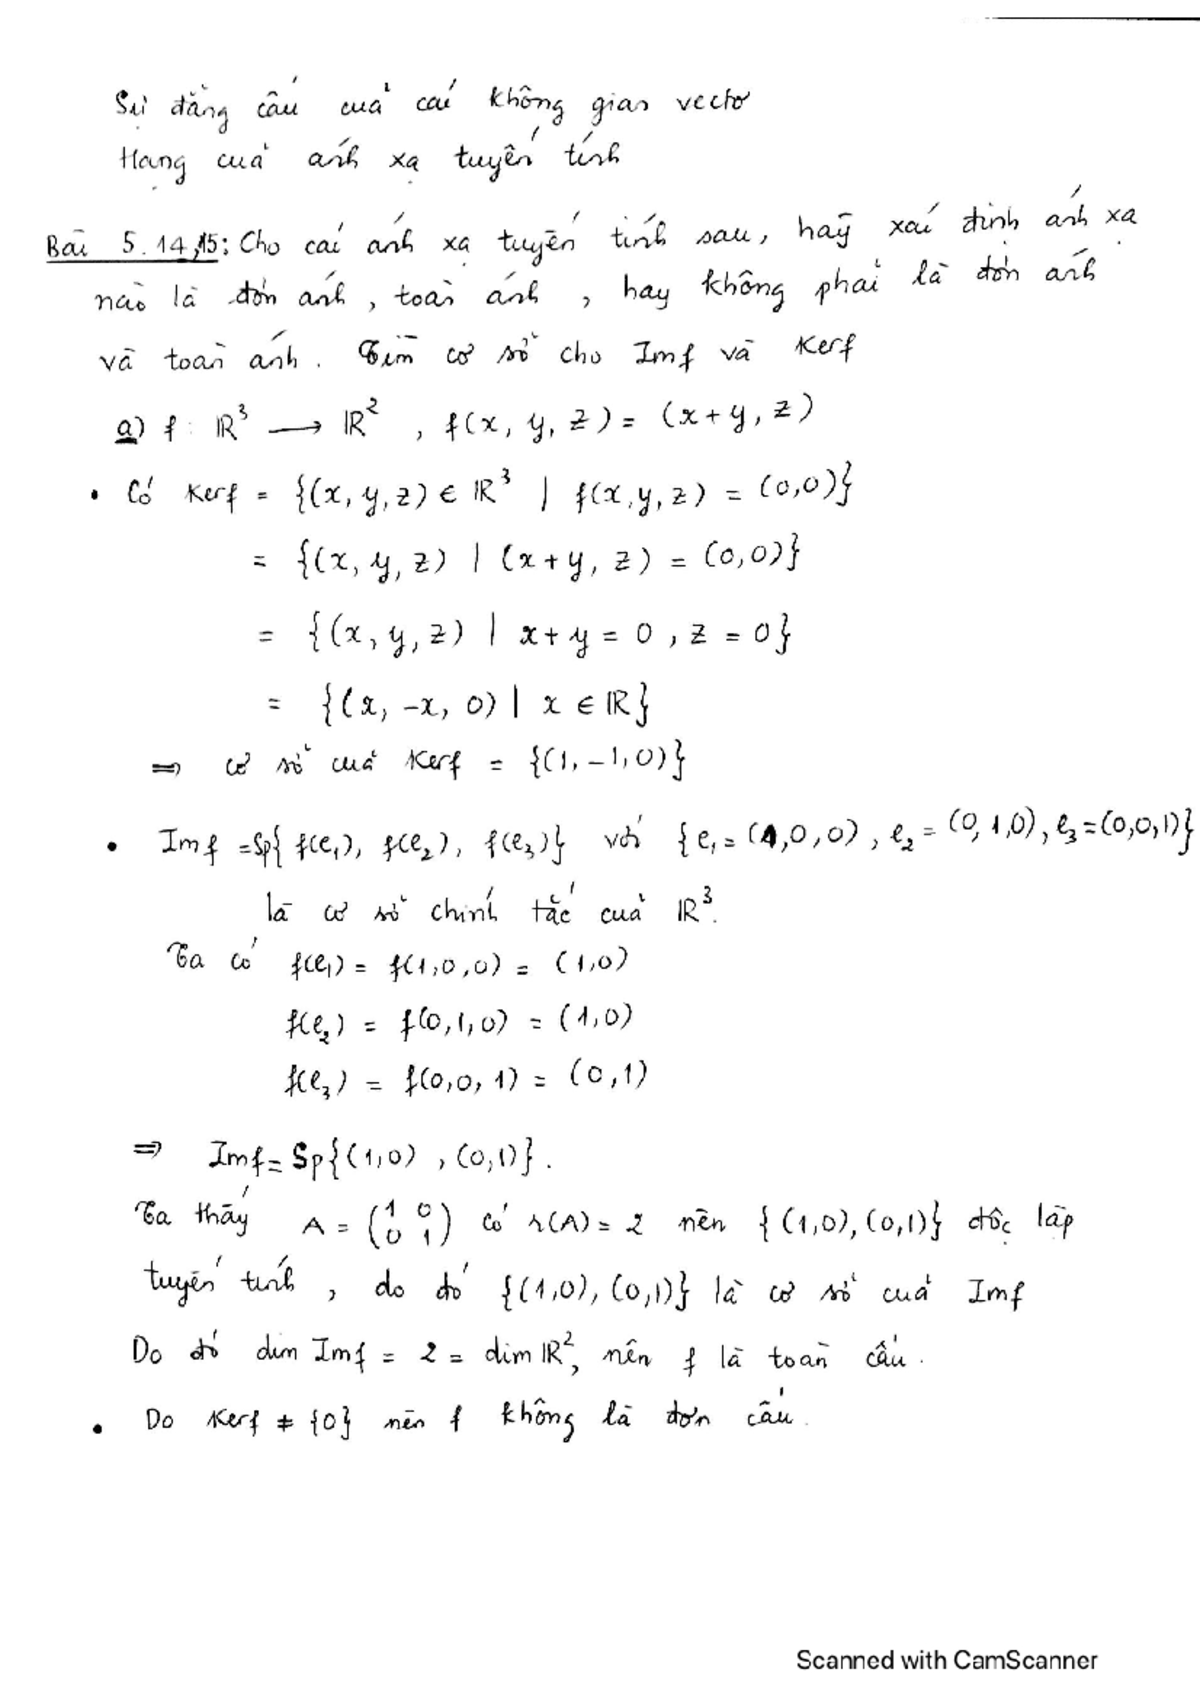 Sự đẳng cấu của các không gian vectơ
Hạng của ánh xạ tuyến tính
Bài 5.14,15: Cho các ánh xạ tuyến tính sau, hãy xác định ánh xạ
nào là đơn ánh, toàn ánh, hay không phải là đơn ánh
và toàn ánh. Tìm cơ sở cho Imf và Kerf
a) f: ℝ³ ⟶ ℝ², f(x, y, z) = (x+y, z)
• Có Kerf = {(x, y, z) ∈ ℝ³ | f(x,y,z) = (0,0)}
= {(x, y, z) | (x+y, z) = (0,0)}
= {(x, y, z) | x+y = 0, z = 0}
= {(x, -x, 0) | x ∈ ℝ}
⇒ cơ sở của Kerf = {(1, -1, 0)}
• Imf = Sp{f(e₁), f(e₂), f(e₃)} với {e₁ = (1,0,0), e₂ = (0,1,0), e₃ = (0,0,1)}
là cơ sở chính tắc của ℝ³.
Ta có f(e₁) = f(1,0,0) = (1,0)
f(e₂) = f(0,1,0) = (1,0)
f(e₃) = f(0,0,1) = (0,1)
⇒ Imf = Sp{(1,0), (0,1)}.
Ta thấy A = (1 0 0 1) có r(A) = 2 nên {(1,0), (0,1)} độc lập
tuyến tính, do đó {(1,0), (0,1)} là cơ sở của Imf
Do đó dim Imf = 2 = dim ℝ², nên f là toàn cấu.
• Do Kerf ≠ {0} nên f không là đơn cấu.
Scanned with CamScanner